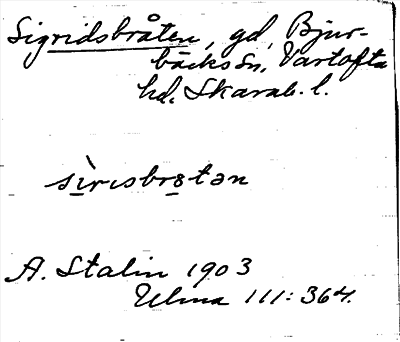 Sigridsbråten, gd, Bjur-
bäcks sn, Vartofta
hd. Skarab. l.
sìrɪsbrɷtən
A. Stalin 1903
Ulma 111:364.